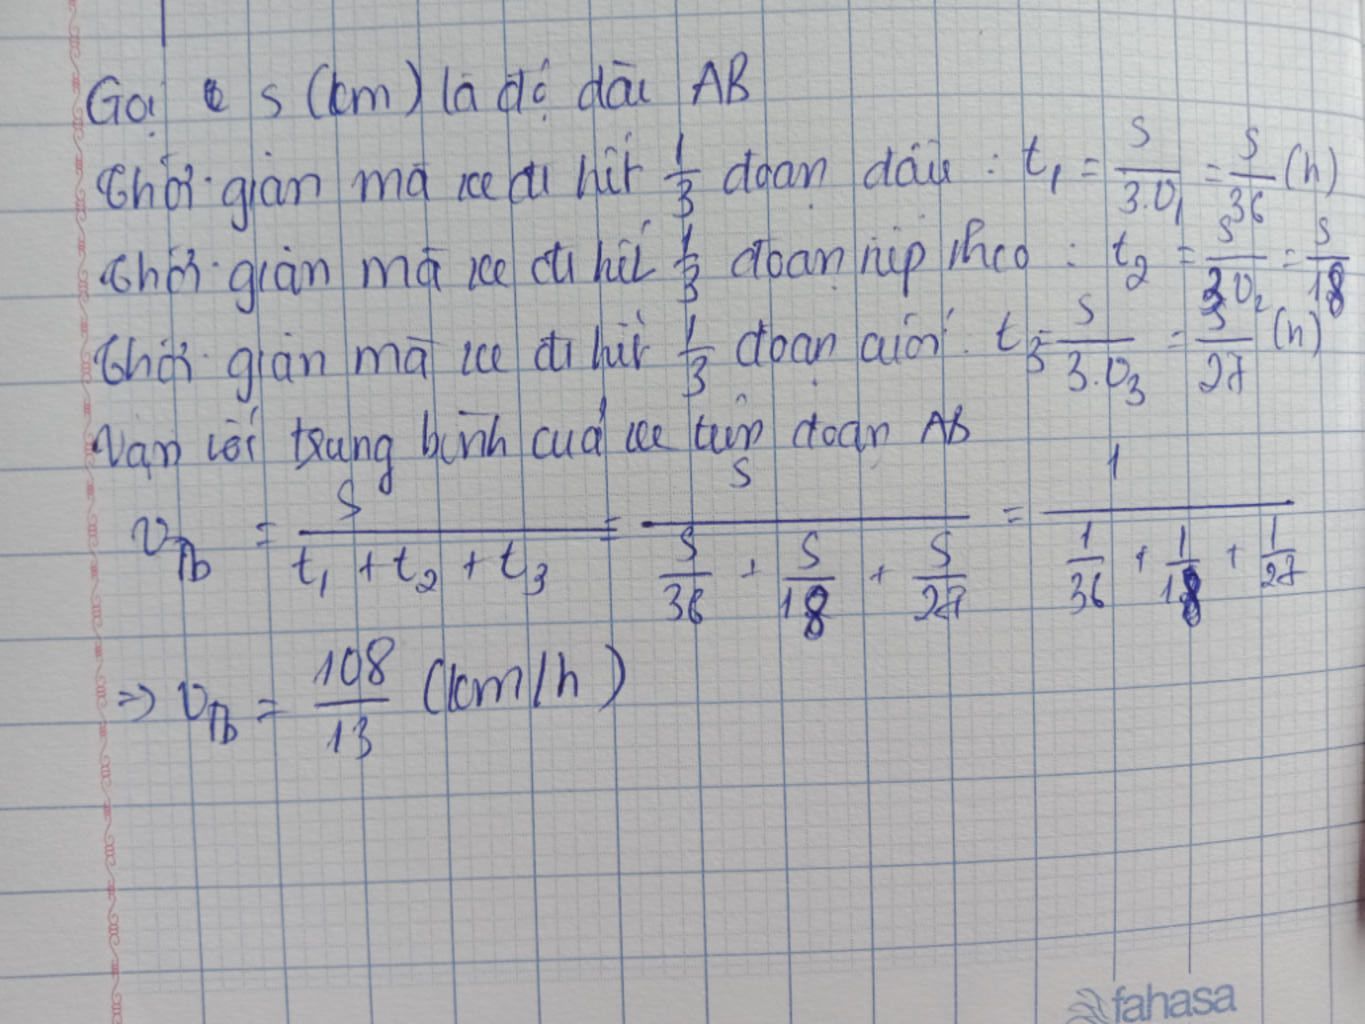 Gọi s (km) là độ dài AB
Thời gian mà xe đi hết 1/3 đoạn đầu : t₁ = s/(3.v₁) = s/36 (h)
Thời gian mà xe đi hết 1/3 đoạn tiếp theo : t₂ = s/(3v₂) = s/18
Thời gian mà xe đi hết 1/3 đoạn cuối : t₃ = s/(3.v₃) = s/27 (h)
Vận tốc trung bình của xe trên đoạn AB
v_Tb = s/(t₁ + t₂ + t₃) = s/(s/36 + s/18 + s/27) = 1/(1/36 + 1/18 + 1/27)
=> v_Tb = 108/13 (km/h)
fahasa